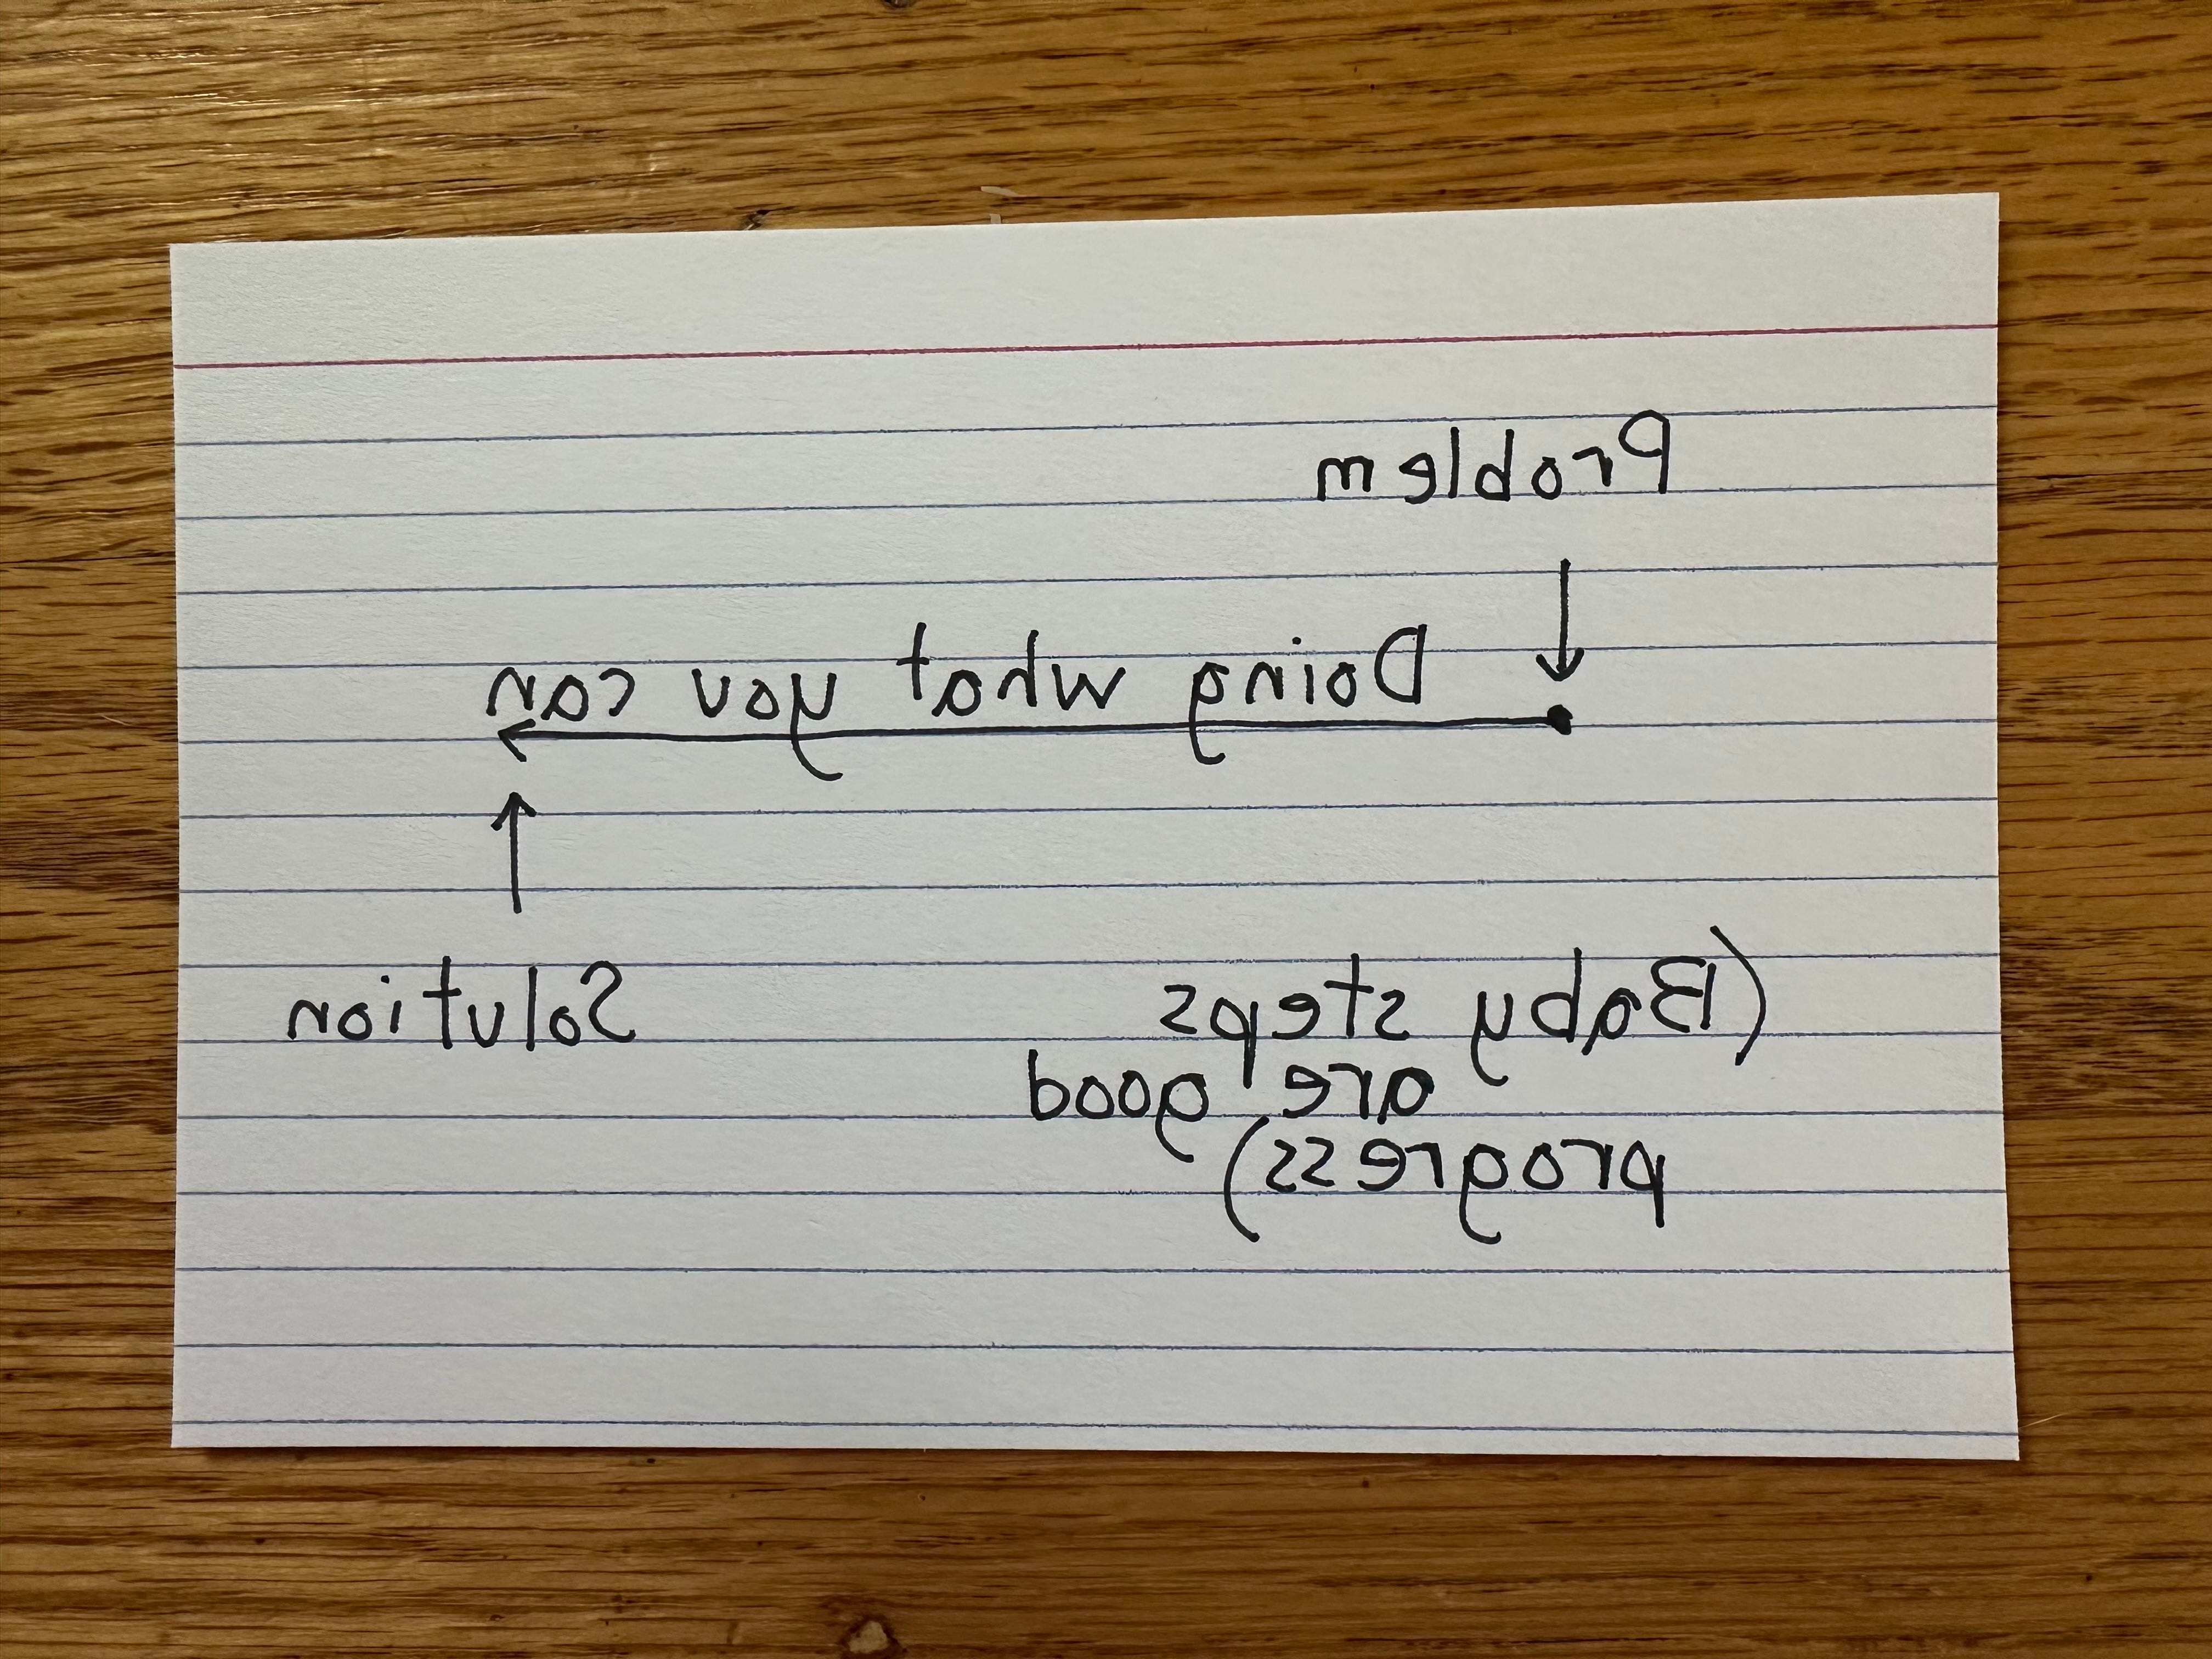 Problem
Doing what you can
Solution
(Baby steps
are good
progress)